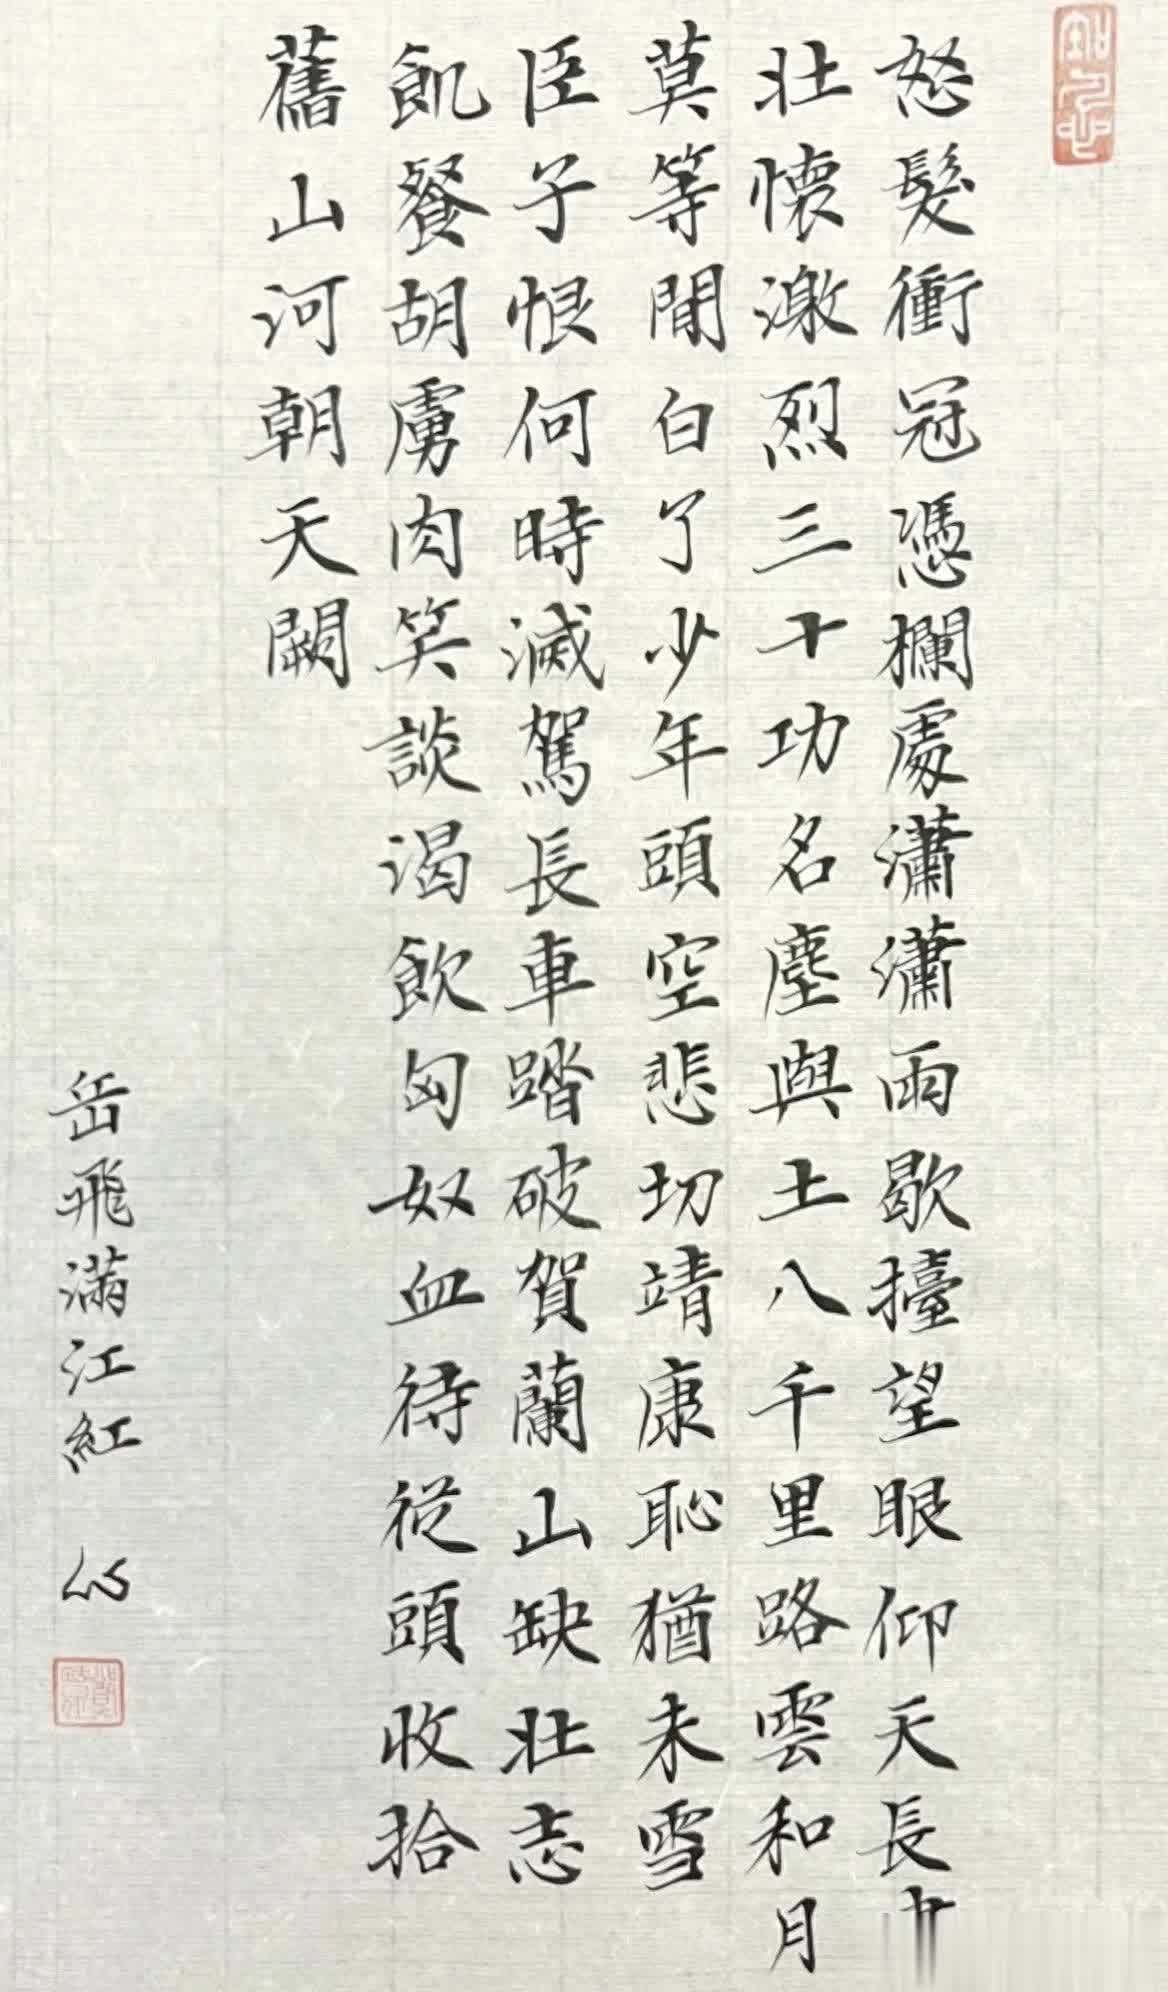 怒髮衝冠憑欄處瀟瀟雨歇擡望眼仰天長
壯懷激烈三十功名塵與土八千里路雲和月
莫等閒白了少年頭空悲切靖康恥猶未雪
臣子恨何時滅駕長車踏破賀蘭山缺壯志
飢餐胡虜肉笑談渴飲匈奴血待從頭收拾
舊山河朝天闕
岳飛滿江紅